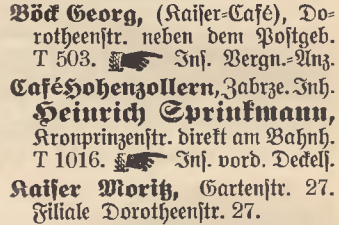 Böck Georg, (Kaiser-Café), Do-
rotheenstr. neben dem Postgeb.
T 503. ☛ Ins. Vergn.-Anz.
Café Hohenzollern, Zabrze. Inh.
Heinrich Sprinkmann,
Kronprinzenstr. direkt am Bahnh.
T 1016. ☛ Ins. vord. Deckels.
Kaiser Moritz, Gartenstr. 27.
Filiale Dorotheenstr. 27.